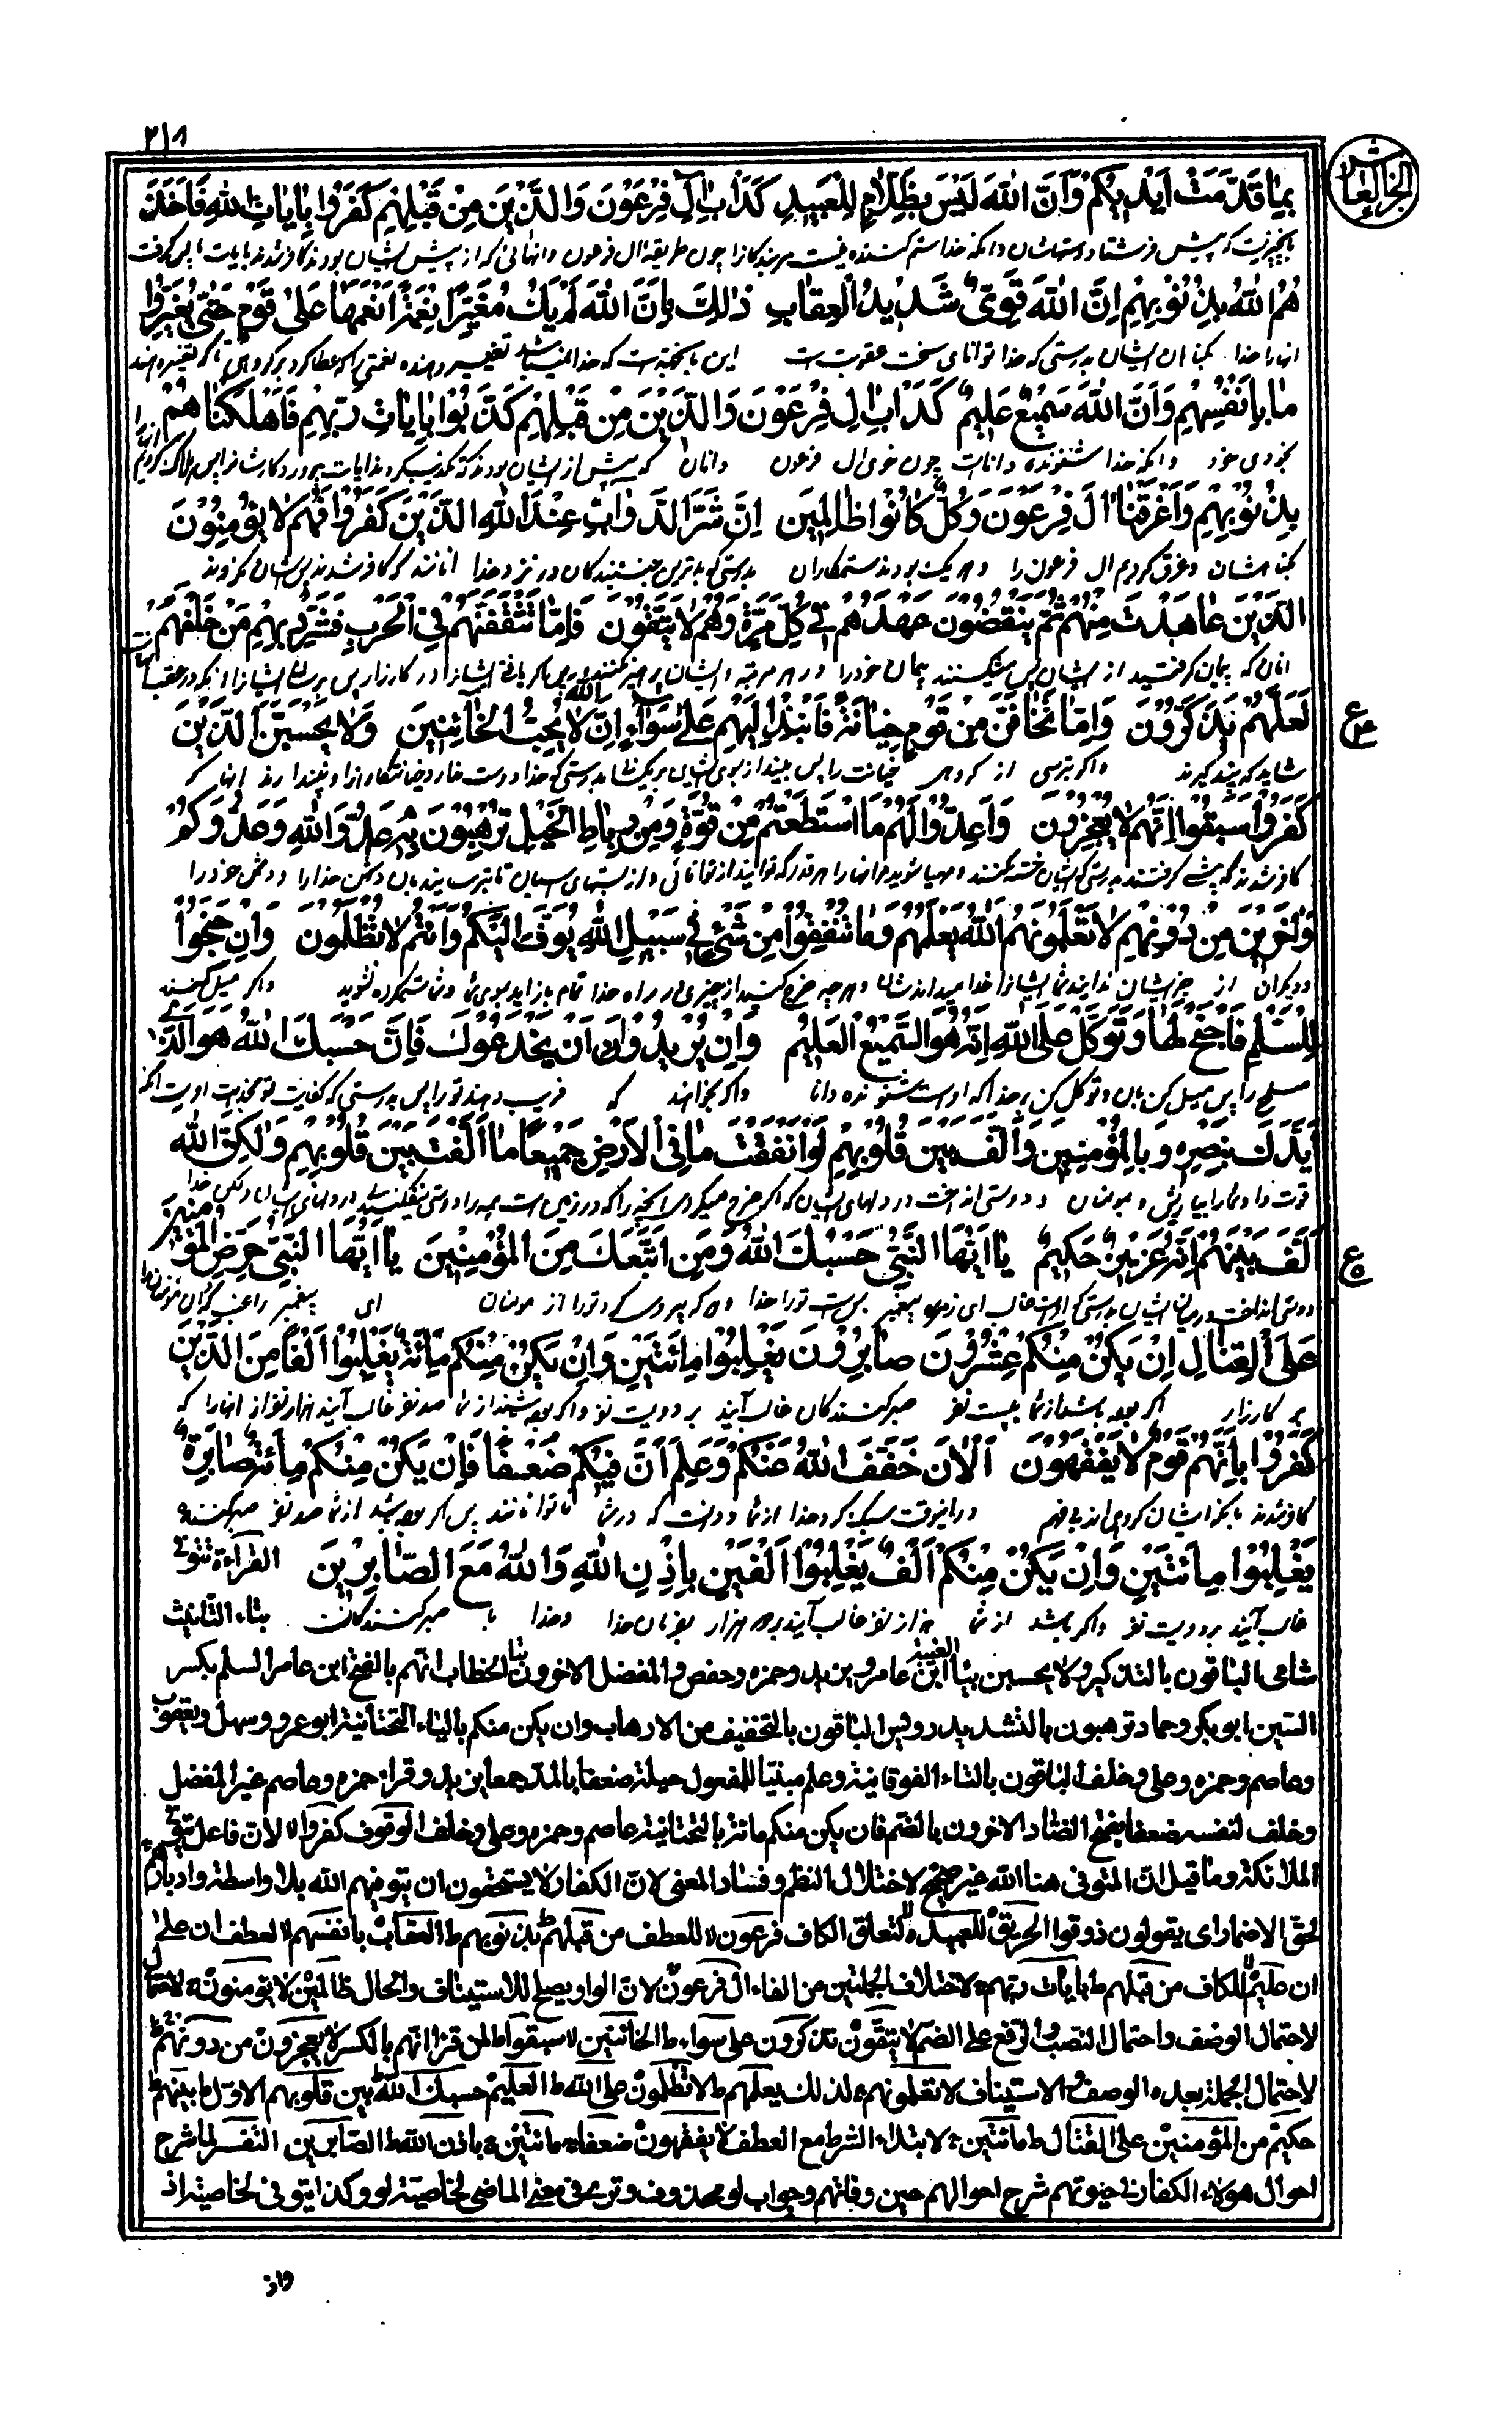 ٢١٨
الجزء العاشر
بِمٰا قَدَّمَتْ اَيْدِيكُمْ وَاَنَّ اللهَ لَيْسَ بِظَلّٰامٍ لِلْعَبِيدِ كَدَأْبِ اٰلِ فِرْعَوْنَ وَالَّذِيْنَ مِنْ قَبْلِهِمْ كَفَرُوا بِاٰيٰاتِ اللهِ فَاَخَذَ
بانچیزیست که پیش فرستاد دستهاشان وانکه خدا ستم کننده نیست مر بندکانرا چون طریقه ال فرعون وانهائی که از پیش ایشان بودند کافر شدند بایات پس کرفت
هُمُ اللهُ بِذُنُوبِهِمْ اِنَّ اللهَ قَوِيٌّ شَدِيدُ الْعِقٰابِ ذٰلِكَ بِاَنَّ اللهَ لَمْ يَكُ مُغَيِّرًا نِعْمَةً اَنْعَمَهَا عَلىٰ قَوْمٍ حَتّٰى يُغَيِّرُوا
انهارا خدا بکناهان ایشان بدرستی که خدا توانای سخت عقوبت است این بانجهتست که خدا نمیباشد تغییر دهنده نعمتی را که عطا کرد بر کروهی تا که تغییر دهند
مٰا بِاَنْفُسِهِمْ وَاَنَّ اللهَ سَمِيْعٌ عَلِيمٌ كَدَأْبِ اٰلِ فِرْعَوْنَ وَالَّذِيْنَ مِنْ قَبْلِهِمْ كَذَّبُوا بِاٰيٰاتِ رَبِّهِمْ فَاَهْلَكْنٰاهُمْ
بخودی خود وانکه خدا شنونده داناست چون خوی ال فرعون وانان که پیش از ایشان بودند که تکذیب کردند ایات پروردکارشانرا پس هلاک کردیم انها را
بِذُنُوبِهِمْ وَاَغْرَقْنٰا اٰلَ فِرْعَوْنَ وَكُلٌّ كٰانُوا ظٰالِمِيَن اِنَّ شَرَّ الدَّوَابِّ عِنْدَ اللهِ الَّذِيْنَ كَفَرُوْا فَهُمْ لٰا يُؤْمِنُوْنَ
بکناهشان وغرق کردیم ال فرعون را وهر یک بودند ستمکاران بدرستی که بدترین جنبندکان در نزد خدا انانند که کافر شدند پس ایشان نمیکروند
الَّذِيْنَ عٰاهَدْتَ مِنْهُمْ ثُمَّ يَنْقُضُونَ عَهْدَهُمْ فِي كُلِّ مَرَّةٍ وَهُمْ لٰا يَتَّقُونَ فَاِمّٰا تَثْقَفَنَّهُمْ فِي الْحَرْبِ فَشَرِّدْ بِهِمْ مَنْ خَلْفَهُمْ
انان که پیمان کرفتید از ایشان پس میشکنند پیمان خودرا در هر مرتبه وایشان پرهیز نمیکنند پس اکر یافتی ایشانرا در کارزار پس
لَعَلَّهُمْ يَذَّكَّرُوْنَ وَاِمّٰا تَخٰافَنَّ مِنْ قَوْمٍ خِيٰانَةً فَانْبِذْ اِلَيْهِمْ عَلىٰ سَوٰاءٍ اِنَّ اللهَ لٰا يُحِبُّ الْخٰائِنِيَن وَلٰا يَحْسَبَنَّ الَّذِيْنَ
شاید که پند کیرند واکر بترسی از کروهی خیانت را پس بینداز بسوی ایشان بر یکسان بدرستی که خدا دوست ندارد خیانتکارانرا ونپندارند انها که
كَفَرُوْا سَبَقُوا اِنَّهُمْ لٰا يُعْجِزُونَ وَاَعِدُّوْا لَهُمْ مَا اسْتَطَعْتُمْ مِنْ قُوَّةٍ وَمِنْ رِبٰاطِ الْخَيْلِ تُرْهِبُوْنَ بِهِ عَدُوَّ اللهِ وَعَدُوَّكُمْ
کافر شدند که پیشی کرفتند بدرستی که ایشان خسته نکنند ومهیا شوید مر انهارا هر قدر که توانید از توانائی واز بستهای اسبان تا بترسانید بان دشمن خدا را ودشمن خودرا
وَاٰخَرِيْنَ مِنْ دُوْنِهِمْ لٰا تَعْلَمُوْنَهُمْ اَللهُ يَعْلَمُهُمْ وَمٰا تُنْفِقُوْا مِنْ شَيْءٍ فِي سَبِيْلِ اللهِ يُوَفَّ اِلَيْكُمْ وَاَنْتُمْ لٰا تُظْلَمُونَ وَاِنْ جَنَحُوْا
ودیکران از جز ایشان ندانید شما ایشانرا خدا میداندشان وهر چه خرج کنید از چیزی در راه خدا تمام باز اید بسوی شما وشما ستمکرده نشوید واکر میل کنند
لِلسَّلْمِ فَاجْنَحْ لَهٰا وَتَوَكَّلْ عَلَى اللهِ اِنَّهُ هُوَ السَّمِيْعُ الْعَلِيْمُ وَاِنْ يُرِيْدُوْا اَنْ يَخْدَعُوْكَ فَاِنَّ حَسْبَكَ اللهُ هُوَ الَّذِي
صلح را پس میل کن بان وتوکل کن بر خدا که اوست شنونده دانا واکر بخواهند که فریب دهند تورا پس بدرستی که کفایت تو خداست اوست انکه
اَيَّدَكَ بِنَصْرِهِ وَبِالْمُؤْمِنِيْنَ وَاَلَّفَ بَيْنَ قُلُوْبِهِمْ لَوْ اَنْفَقْتَ مٰا فِي الْاَرْضِ جَمِيْعًا مٰا اَلَّفْتَ بَيْنَ قُلُوْبِهِمْ وَلٰكِنَّ اللهَ
قوت داد تورا بیاریش وبمومنان ودوستی انداخت در دلهای ایشان که اکر خرج میکردی انچه را که در زمین است همه را دوستی نمیفکندی در دلهای ایشان ولکن خدا
اَلَّفَ بَيْنَهُمْ اِنَّهُ عَزِيْزٌ حَكِيمٌ يٰا اَيُّهَا النَّبِيُّ حَسْبُكَ اللهُ وَمَنِ اتَّبَعَكَ مِنَ الْمُؤْمِنِيْنَ يٰا اَيُّهَا النَّبِيُّ حَرِّضِ الْمُؤْمِنِيْنَ
دوستی انداخت در میان ایشان بدرستی که اوست غالب ای پیغمبر بس است تورا خدا وان که پیروی کرد تورا از مومنان ای پیغمبر راغب کردان مومنانرا
عَلَى الْقِتٰالِ اِنْ يَكُنْ مِنْكُمْ عِشْرُوْنَ صٰابِرُوْنَ يَغْلِبُوْا مِائَتَيْنِ وَاِنْ يَكُنْ مِنْكُمْ مِائَةٌ يَغْلِبُوْا اَلْفًا مِنَ الَّذِيْنَ
بر کارزار اکر بوده باشد از شما بیست نفر صبر کنندکان غالب آیند بر دویست نفر واکر بوده باشند از شما صد نفر غالب آیند هزار نفر از انهارا که
كَفَرُوْا بِاَنَّهُمْ قَوْمٌ لٰا يَفْقَهُوْنَ اَلْاٰنَ خَفَّفَ اللهُ عَنْكُمْ وَعَلِمَ اَنَّ فِيْكُمْ ضَعْفًا فَاِنْ يَكُنْ مِنْكُمْ مِائَةٌ صٰابِرَةٌ
کافر شدند بانکه ایشان کروهی اند بی فهم در اینوقت سبک کرد خدا از شما ودانست که در شما ناتوانانند پس اکر بوده باشد از شما صد نفر صبر کننده
يَغْلِبُوْا مِائَتَيْنِ وَاِنْ يَكُنْ مِنْكُمْ اَلْفٌ يَغْلِبُوْا اَلْفَيْنِ بِاِذْنِ اللهِ وَاللهُ مَعَ الصّٰابِرِيْنَ القراءة تتوفى
غالب آیند بر دویست نفر واکر باشد از شما هزار نفر غالب آیند بر دو هزار بفرمان خدا وخدا با صبر کنندکانست بتاء التانيث
شامي الباقون بالتذكير ولا يحسبن بياء الغيبة ابن عامر ويزيد وحمزه وحفص والمفضل الاخرون بتاء الخطاب انهم بالفتح ابن عامر السلم بكسر
السين ابو بكر وحماد ترهبون بالتشديد رويس الباقون بالتخفيف من الارهاب وان يكن منكم بالياء التحتانية ابو عمرو وسهل ويعقوب
وعاصم وحمزه وعلي وخلف الباقون بالتاء الفوقانية وعلم مبنيا للمفعول جبلة ضعفا بالمد جمعا يزيد وقراء حمزه وعاصم غير المفضل
وخلف لنفسه ضعفا بفتح الضاد الاخرون بالضم فان يكن منكم مائة بالتحتانية عاصم وحمزه وعلي وخلف الوقوف كفروا لا لان فاعل يتوفى
الملائكة وما قيل ان المتوفى هنا الله غير صحيح لاختلال النظم وفساد المعنى لان الكفار لا يستحقون ان يتوفيهم الله بلا واسطة وادبارهم
لحق الاضمار اى يقولون ذوقوا الحريق للعبيد لا لتعلق الكاف فرعون لا للعطف من قبلهم ط بذنوبهم ط العقاب بانفسهم لا للعطف ان على
ان عليم للكاف من قبلهم ط بايات ربهم لاختلاف الجملتين من الفاء ال فرعون لان الواو يصلح للاستيناف والحال ظالمين لا يؤمنون لاحتمال
لاحتمال الوصف واحتمال النصب والرفع على الضم لا يتقون تذكرون على سواء ط الخائنين لا سبقوا ط لمن قرا انهم بالكسر لا يعجزون من دونهم ط
لاحتمال الجملة بعده الوصف والاستيناف لا تعلمونهم لذلك يعلمهم ط لا تظلمون على الله ط العليم حسبك الله بين قلوبهم الاول ط بينهم ط
حكيم من المؤمنين على القتال ط مائتين لابتداء الشرط مع العطف لا يفقهون ضعفا مائتين باذن الله ط الصابرين التفسير لما شرح
احوال هولاء الكفار في حيوتهم شرح احوالهم حين وفاتهم وجواب لو محذوف وترى في معنى الماضي لخاصية لو وكذا يتوفى لخاصية اذ